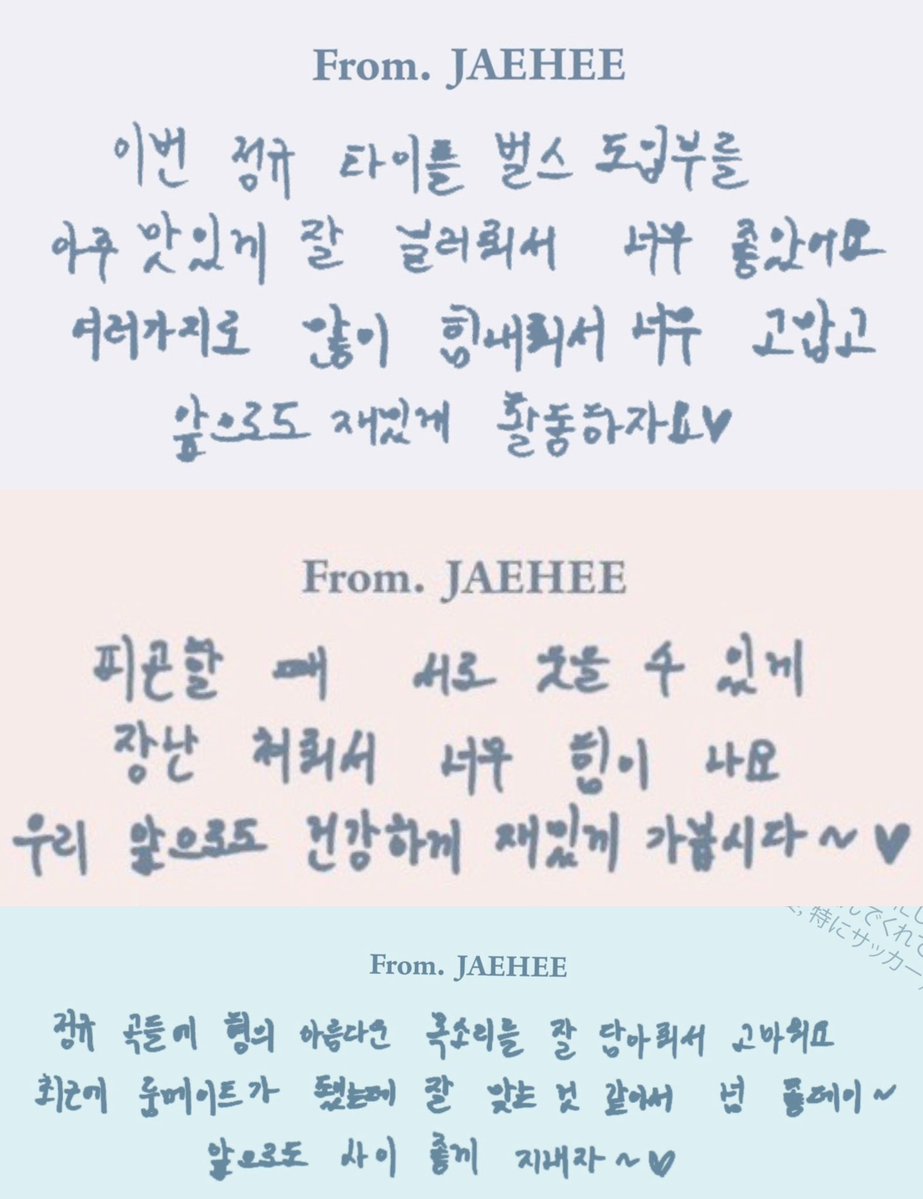 From. JAEHEE
이번 정규 타이틀 벌스 도입부를
아주 맛있게 잘 눌러줘서 너무 좋았어요
여러가지로 많이 힘내줘서 너무 고맙고
앞으로도 재밌게 활동하자요♥
From. JAEHEE
피곤할 때 서로 웃을 수 있게
장난 쳐줘서 너무 힘이 나요
우리 앞으로도 건강하게 재밌게 가봅시다~♥
んでくれて
特にサッカー
From. JAEHEE
정규 곡들에 형의 아름다운 목소리를 잘 담아줘서 고마워요
최근에 룸메이트가 됐는데 잘 맞는 것 같아서 넘
앞으로도 사이 좋게 지내자~♥